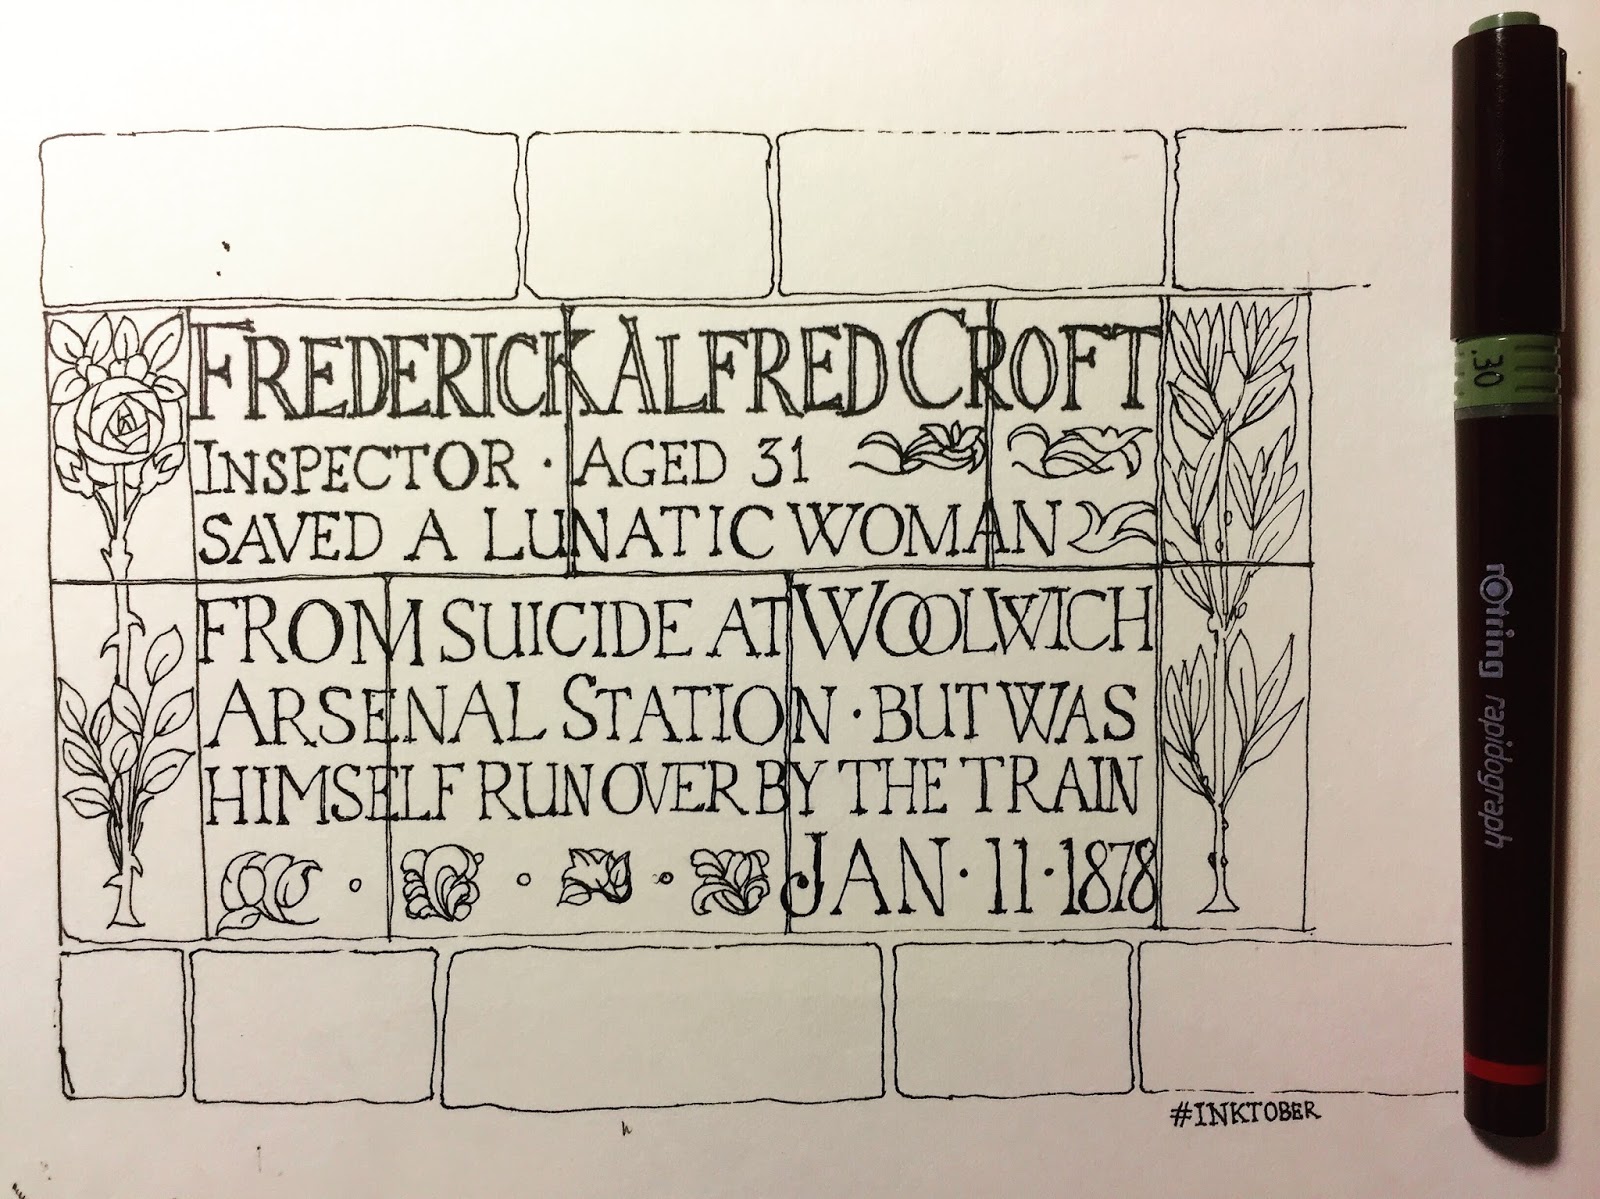 FREDERICK ALFRED CROFT
INSPECTOR · AGED 31
SAVED A LUNATIC WOMAN
FROM SUICIDE AT WOOLWICH
ARSENAL STATION · BUT WAS
HIMSELF RUN OVER BY THE TRAIN
JAN · 11 · 1878
#INKTOBER
.30
rOtring rapidograph